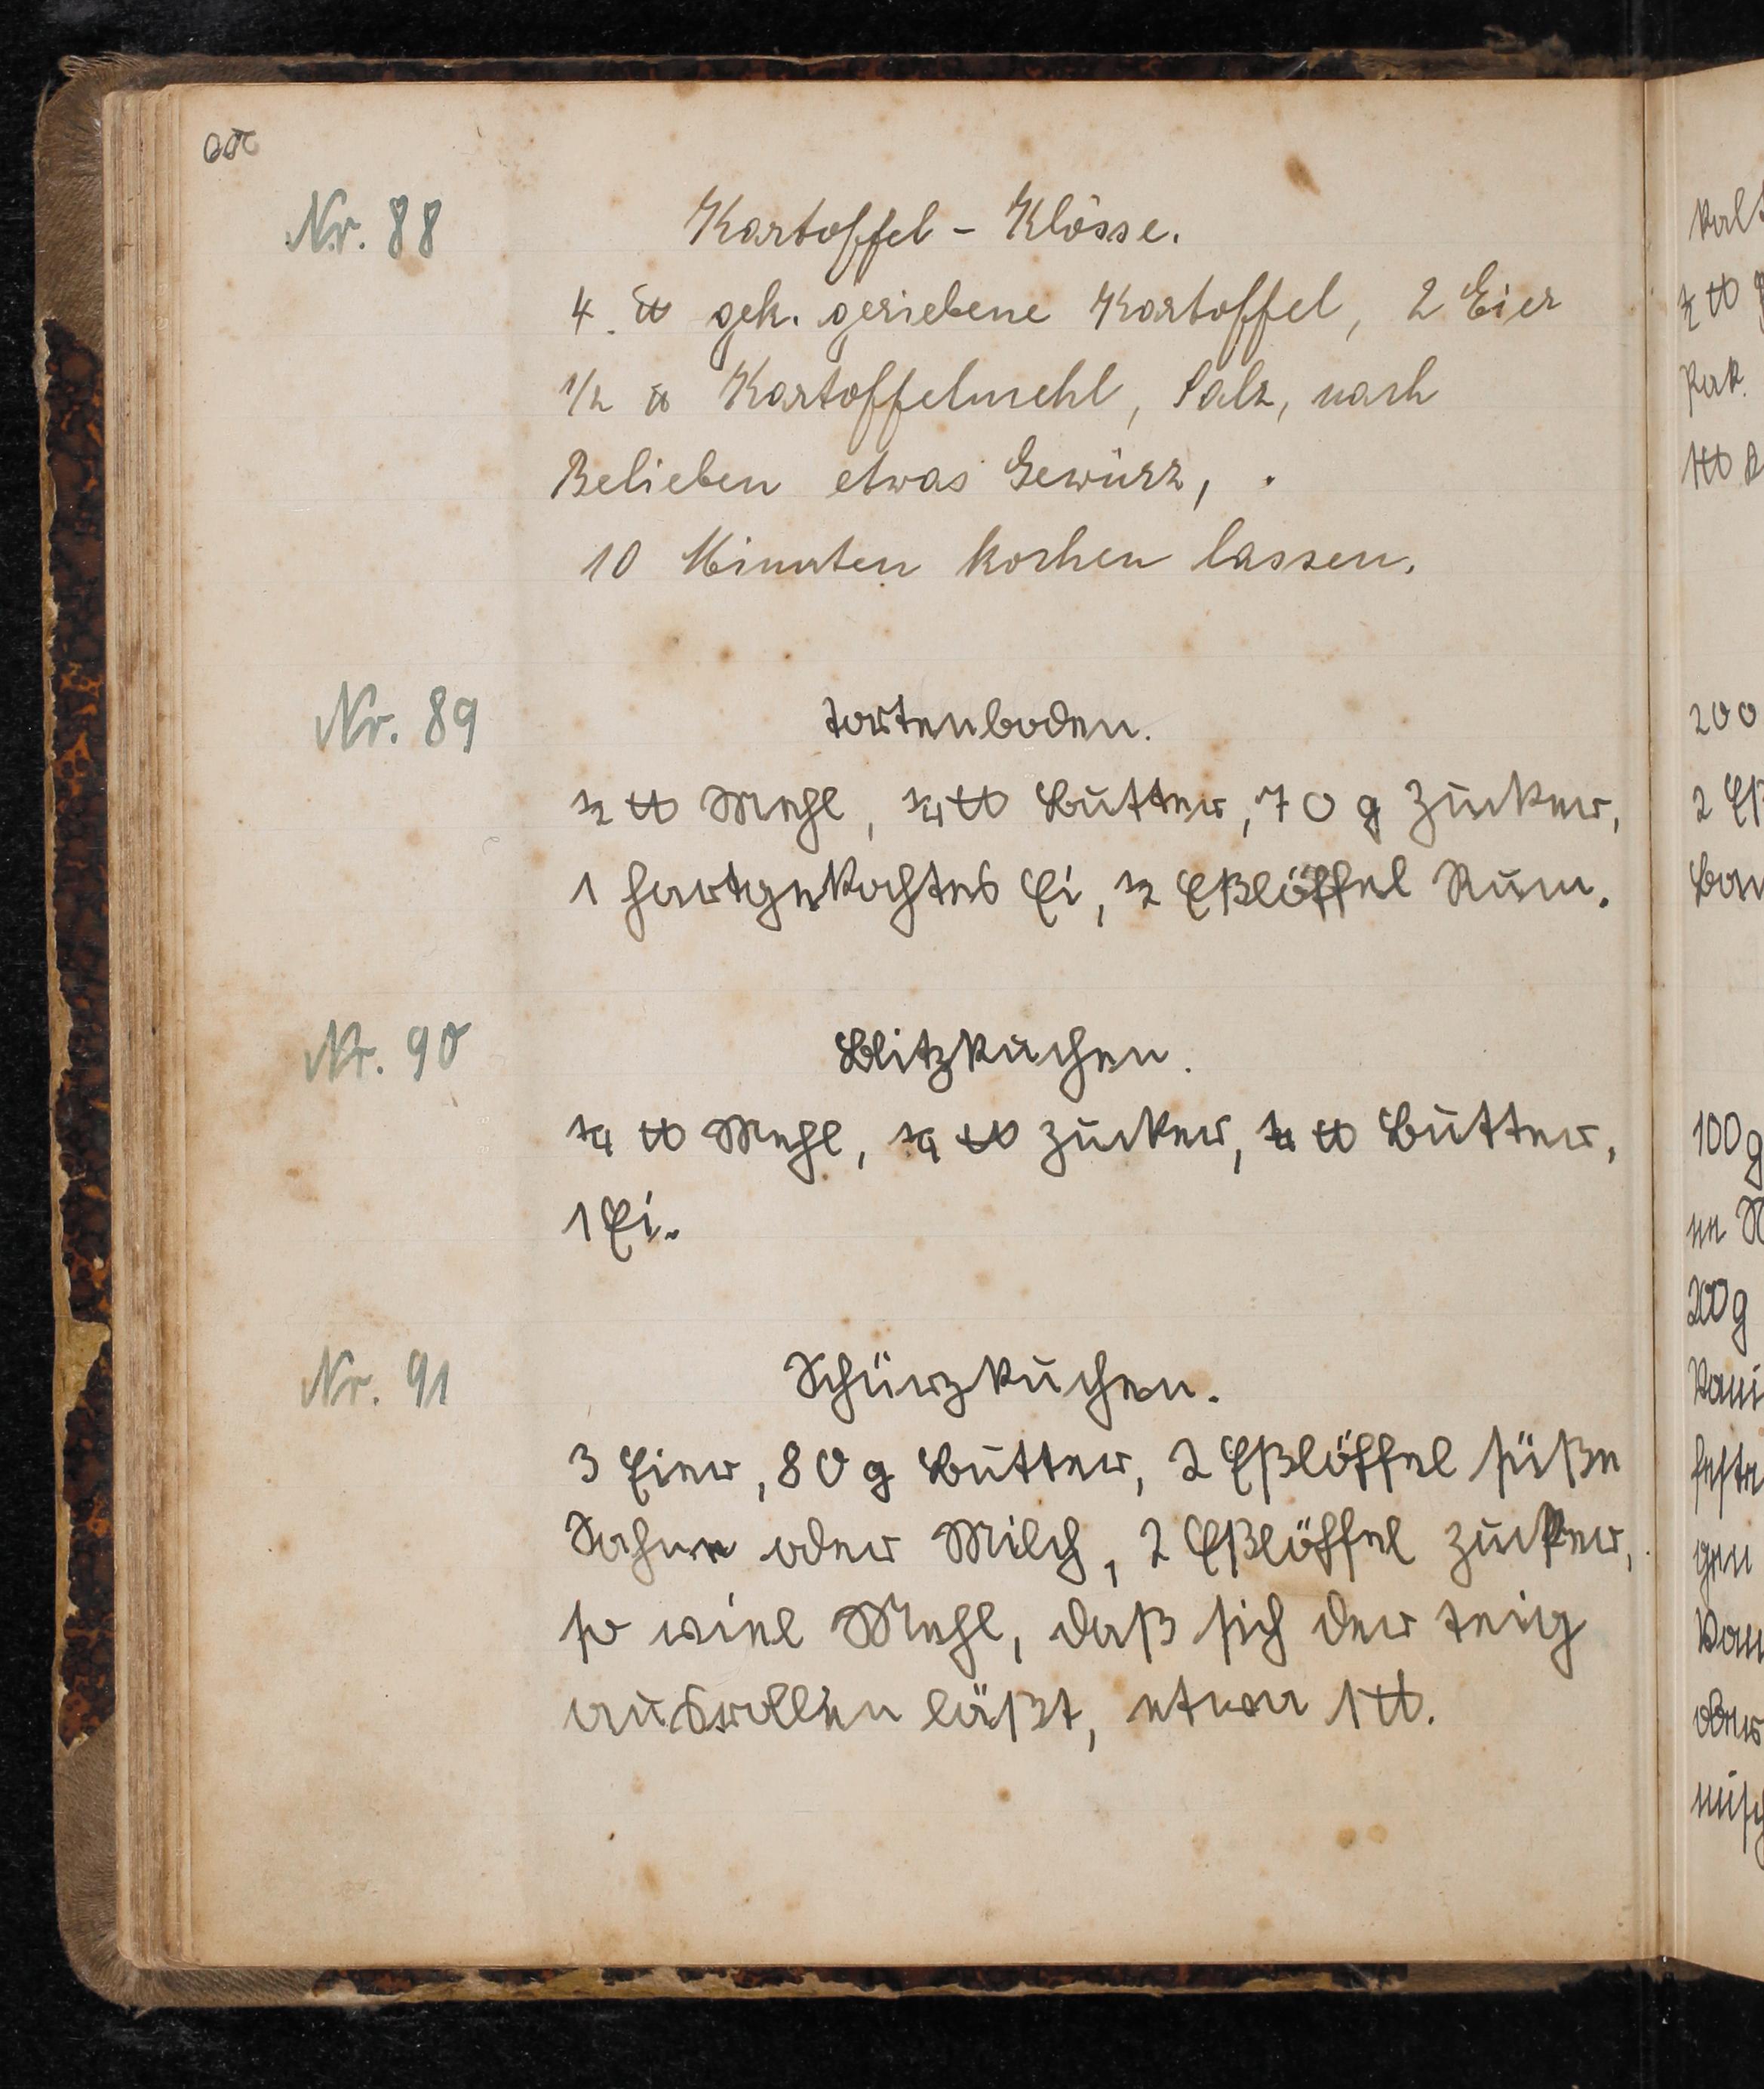 Nr. 88
Kartoffel - Klösse.
4 ℔ gek. geriebene Kartoffel, 2 Eier
1/2 ℔ Kartoffelmehl, Salz, nach
Belieben etwas Gewürz, .
10 Minuten kochen lassen.
Nr. 89
Tortenboden.
½ ℔ Mehl, ¼ ℔ Butter, 70 g Zucker,
1 hartgekochtes Ei, ½ Eßlöffel Rum.
Nr. 90
Blitzkuchen.
¼ ℔ Mehl, ¼ ℔ Zucker, ¼ ℔ Butter,
1 Ei.
Nr. 91
Schürzkuchen.
3 Eier, 80 g Butter, 2 Eßlöffel süße
Sahne oder Milch, 2 Eßlöffel Zucker,
so viel Mehl, daß sich der Teig
ausrollen läßt, etwa 1 ℔.
200
100 g
200 g